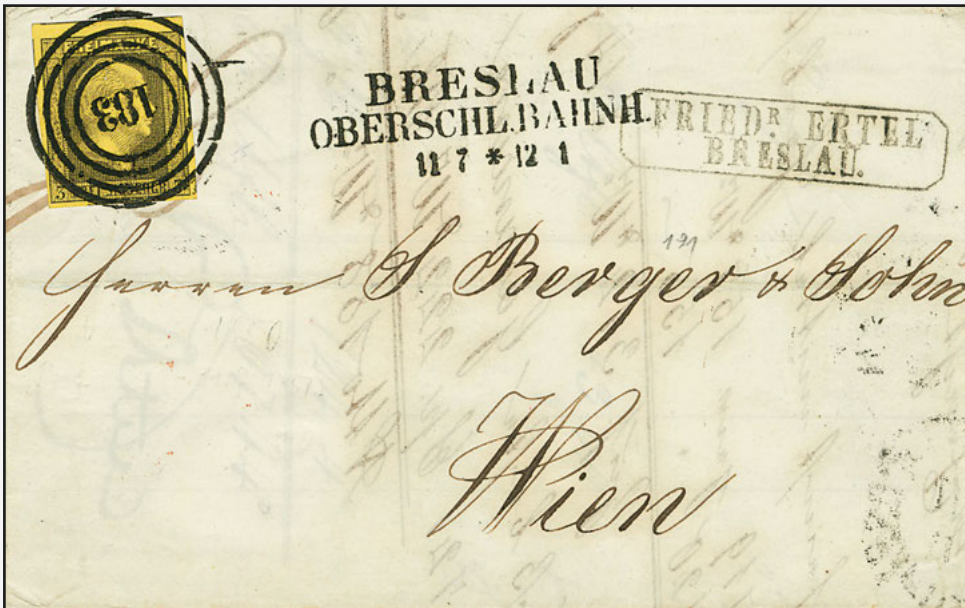 FREIMARKE
103
BRESLAU
OBERSCHL.BAHNH.
11 7 * 12 1
FRIEDR ERTEL
BRESLAU.
191
Herren S Berger & Sohn
Wien